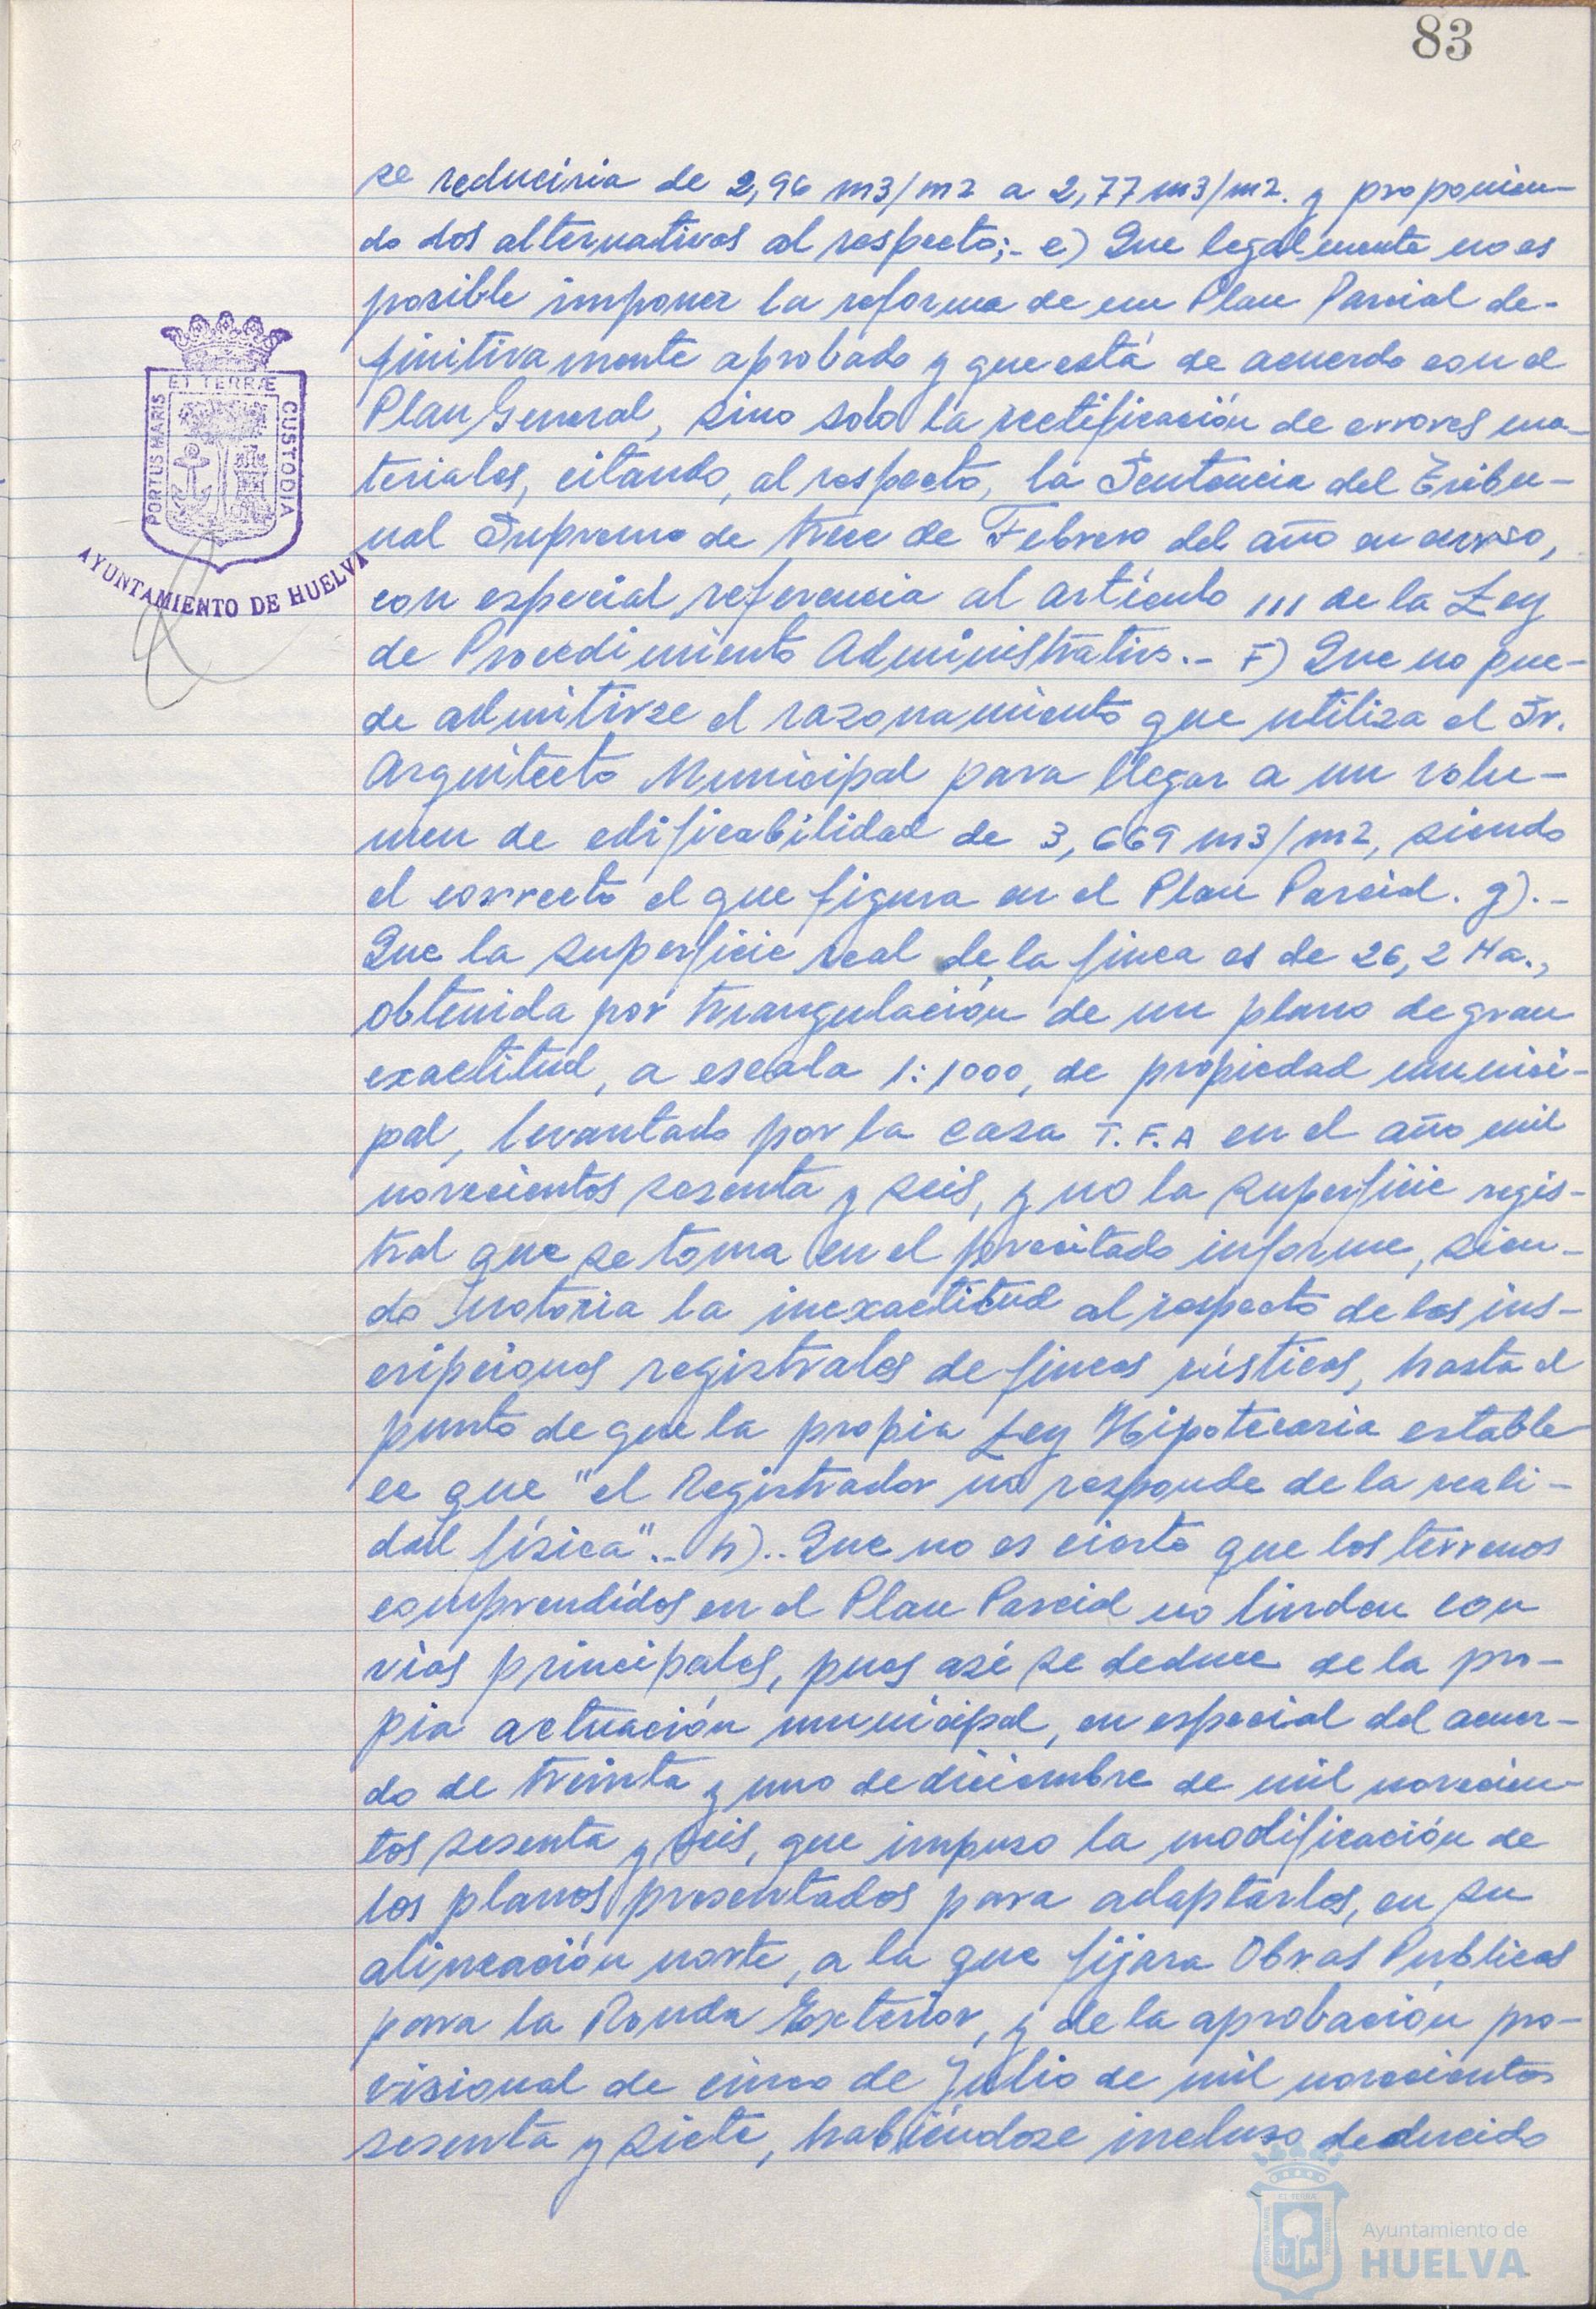 83
se reduciria de 2,96 m3/m2 a 2,77 m3/m2. y proponien-
do dos alternativas al respecto;- e) Que legalmente no es
posible imponer la reforma de un Plan Parcial de-
finitivamente aprobado y que está de acuerdo con el
Plan General, sino solo la rectificación de errores ma-
teriales, citando, al respecto, la Sentencia del Tribu-
nal Supremo de trece de Febrero del año en curso,
con especial referencia al artículo 111 de la Ley
de Procedimiento Administrativo.- F) Que no pue-
de admitirse el razonamiento que utiliza el Sr.
Arquitecto Municipal para llegar a un volu-
men de edificabilidad de 3,669 m3/m2, siendo
el correcto el que figura en el Plan Parcial. g).-
Que la superficie real de la finca es de 26,2 Ha.,
obtenida por triangulación de un plano de gran
exactitud, a escala 1:1000, de propiedad munici-
pal, levantado por la casa T.F.A en el año mil
novecientos sesenta y seis, y no la superficie regis-
tral que se toma en el precitado informe, sien-
do notoria la inexactitud al respecto de las ins-
cripciones registrales de fincas rústicas, hasta el
punto de que la propia Ley Hipotecaria estable
ce que "el Registrador no responde de la reali-
dad física".- h).- Que no es cierto que los terrenos
comprendidos en el Plan Parcial no linden con
vías principales, pues asi se deduce de la pro-
pia actuación municipal, en especial del acuer-
do de treinta y uno de diciembre de mil novecien-
tos sesenta y seis, que impuso la modificación de
los planos presentados para adaptarlos, en su
alineación norte, a la que fijara Obras Publicas
para la Ronda Exterior, y de la aprobación pro-
visional de cinco de Julio de mil novecientos
sesenta y siete, habiéndose incluso deducido
PORTUS MARIS
ET TERRÆ
CUSTODIA
AYUNTAMIENTO DE HUELVA
Ayuntamiento de
HUELVA